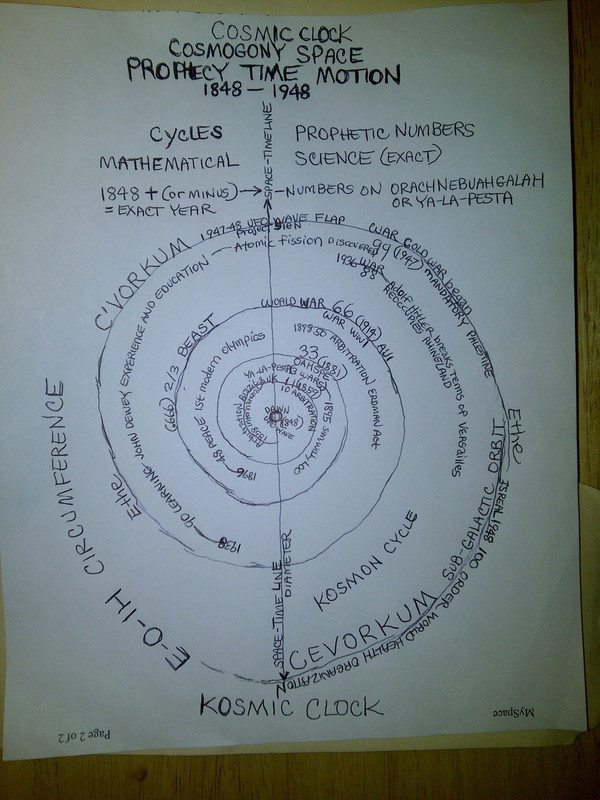 COSMIC CLOCK
COSMOGONY SPACE
PROPHECY TIME MOTION
1848 — 1948
CYCLES
MATHEMATICAL
1848 + (or minus) →
= EXACT YEAR
PROPHETIC NUMBERS
SCIENCE (EXACT)
—NUMBERS ON ORACHNEBUAHGALAH
OR YA-LA-PESTA
SPACE-TIME LINE
C'VORKUM
1947-48 UFO WAVE FLAP
Project SIGN
WAR COLD WAR began
99 (1947) MANDATORY PALESTINE
Atomic fission DISCOVERED
1936 WAR
88
Adolf Hitler breaks terms of VERSAILLES
REOCCUPIES RHINELAND
90 LEARNING JOHN DEWEY EXPERIENCE AND EDUCATION
1938
WORLD WAR 66 (1914)
WAR WW1
(666) 2/3 BEAST
1898 50 ARBITRATION ERDMAN Act
1896 48 PEACE 1st modern olympics
33 (1881)
OAHSPE
YA-LA-PESTA
1895
11 (1859)
10 ARBITRATION
1858
DAWN
(1848)
E-the
CIRCUMFERENCE
E-O-IH
SPACE-TIME LINE
DIAMETER
KOSMON CYCLE
CEVORKUM
SUB-GALACTIC ORBIT
E-the
ISREAL 1948 100 ORDER WORLD HEALTH ORGANIZATION
KOSMIC CLOCK
MySpace
Page 2 of 2